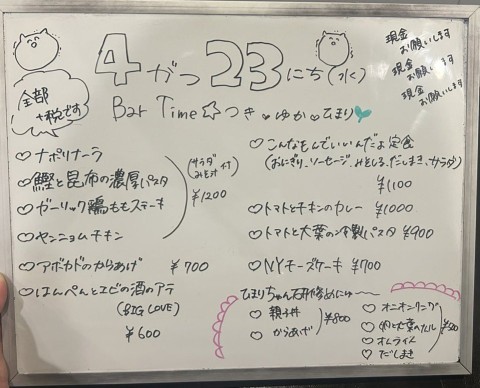 4がつ23にち(水)
現金お願いします
現金お願いします
現金お願いします
全部
+税です
Bar Time☆つき・ゆか♡ひまり
♡ナポリナーラ
♡鰹と昆布の濃厚パスタ
♡ガーリック鶏ももステーキ
♡ヤンニョムチキン
(サラダ
みそ汁付)
¥1200
♡アボカドのからあげ ¥700
♡はんぺんとエビの酒のアテ
(BIG LOVE)
¥600
♡こんなもんでいいんだよ定食
(おにぎり、ソーセージ、みそしる、だしまき、サラダ)
¥1100
♡トマトとチキンのカレー ¥1000
♡トマトと大葉の冷製パスタ ¥900
♡NYチーズケーキ ¥700
ひまりちゃん研修めにゅ〜
♡親子丼
♡からあげ
¥800
♡オニオンリング
♡オムライス
♡だしまき